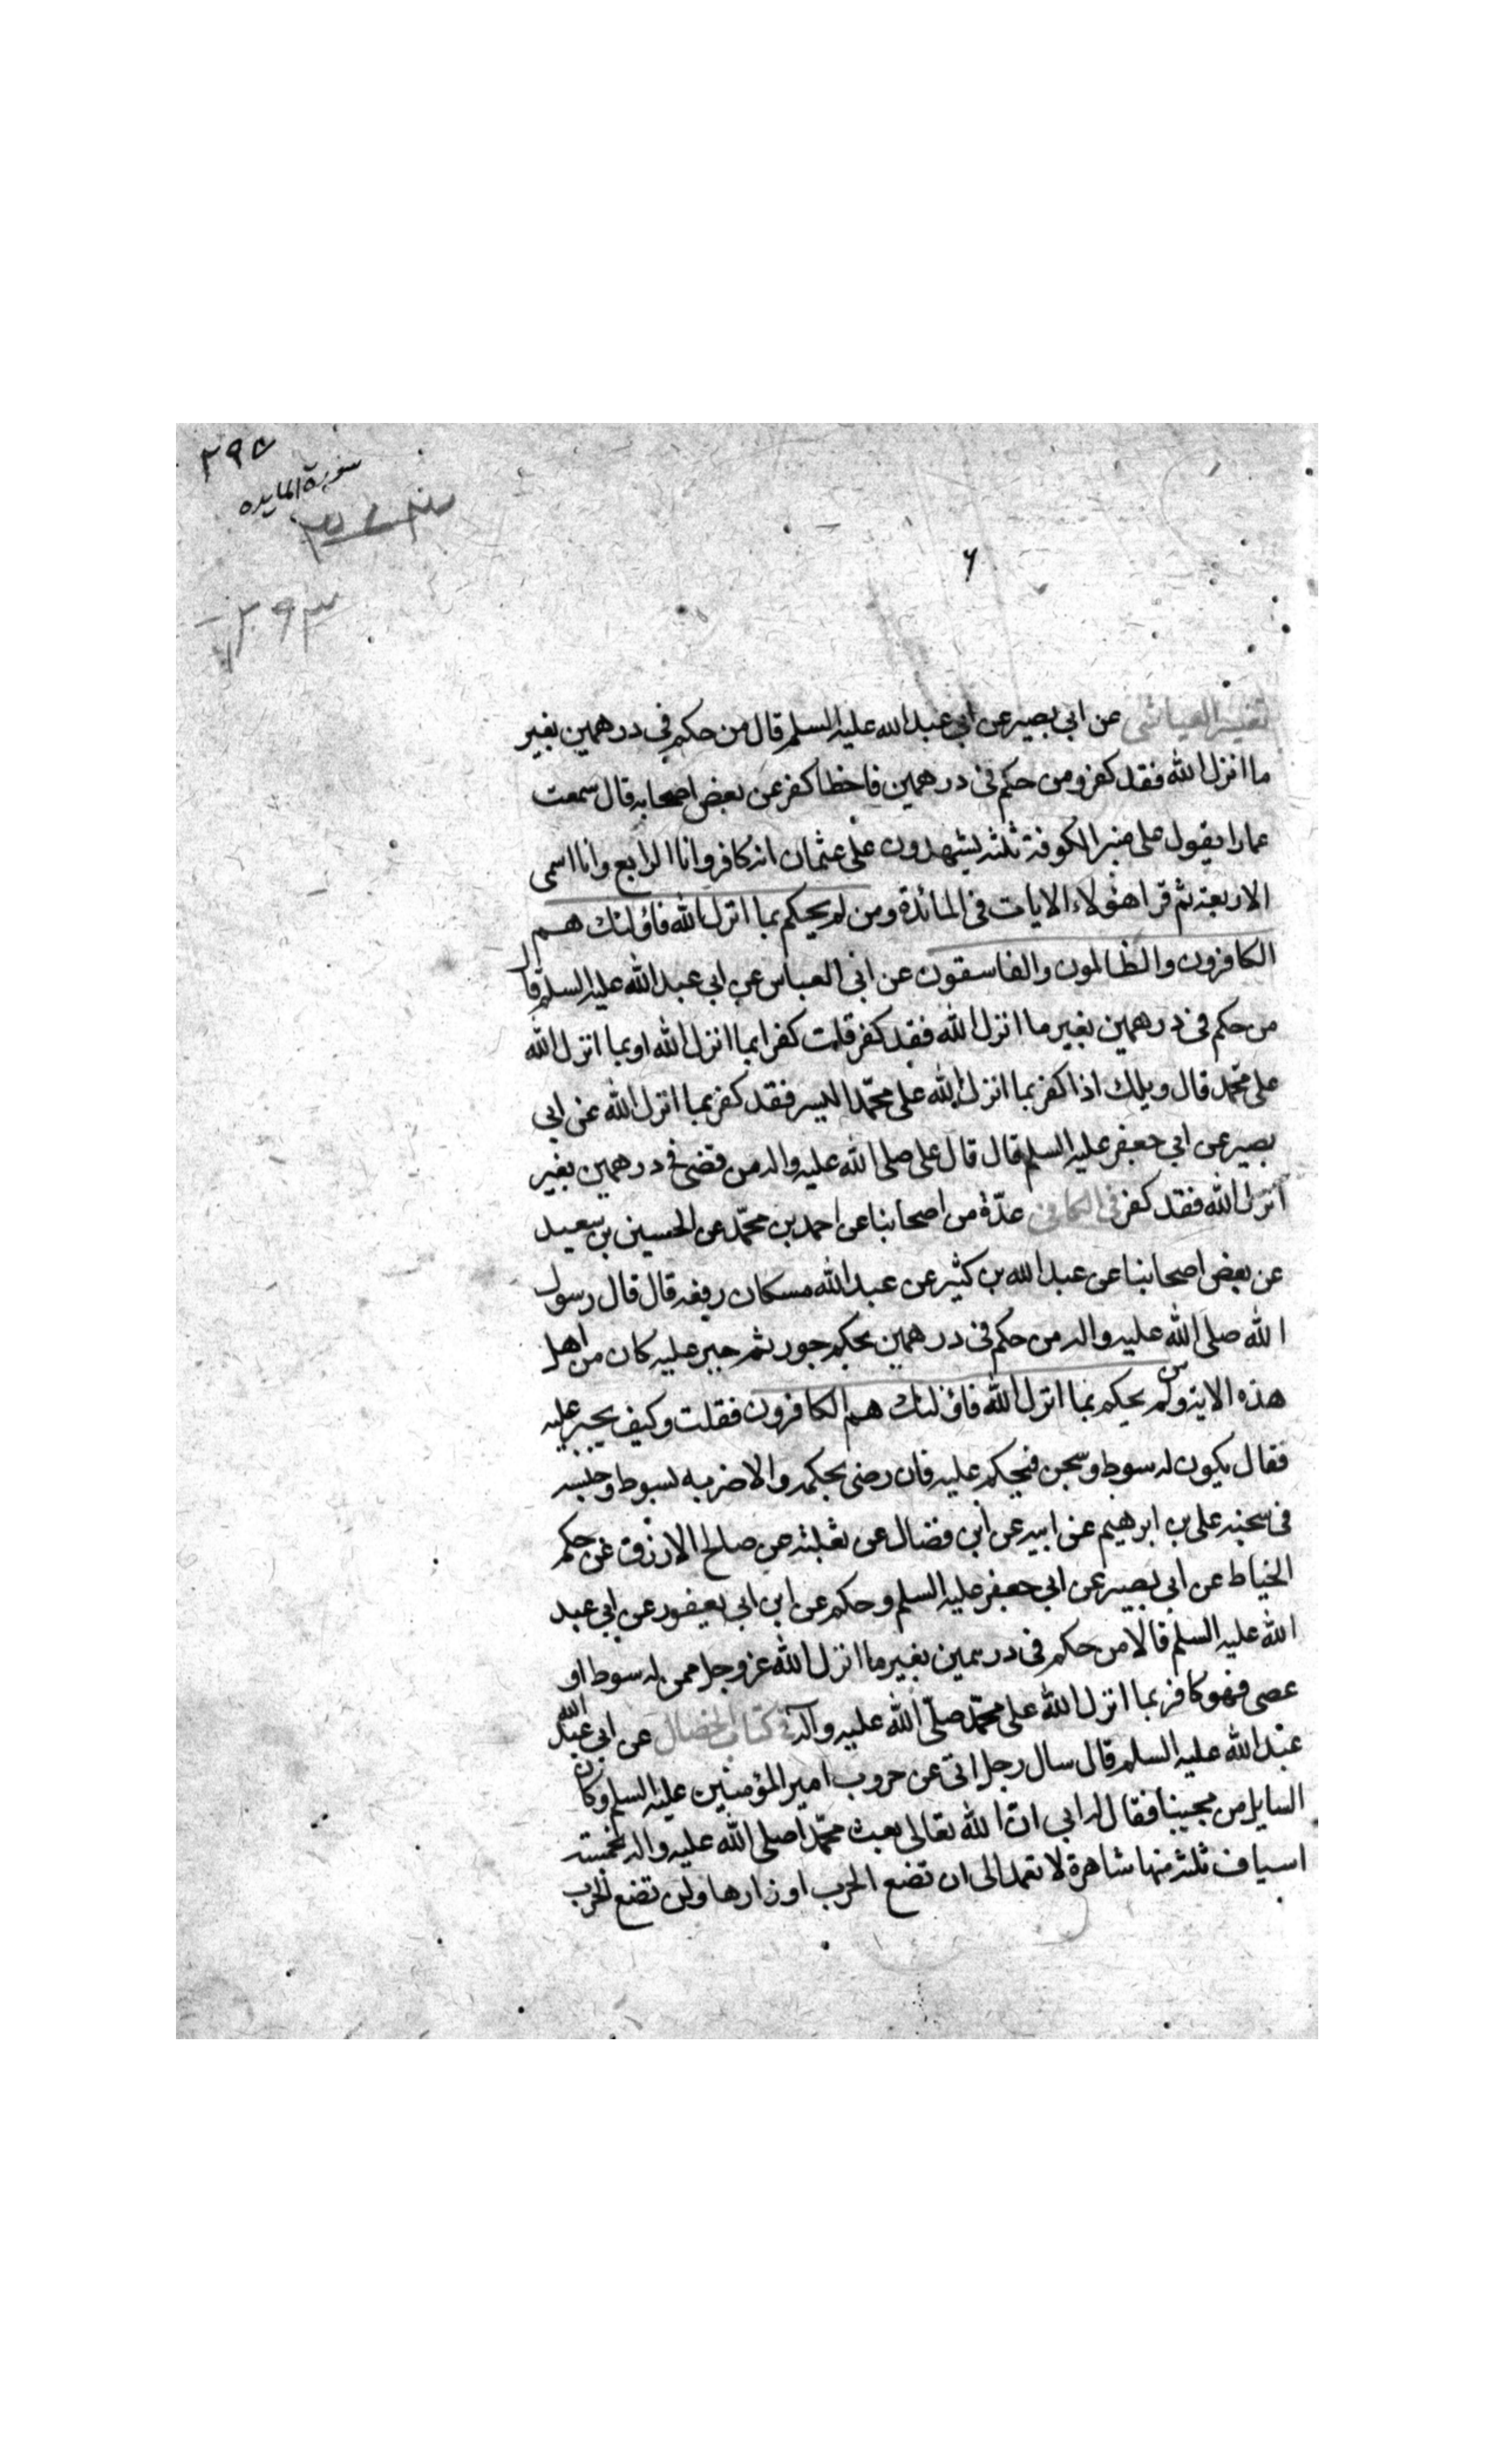 ٢٩٥
سورة المايده
٢٩٣
٦
تفسير العياشى عن ابى بصير عن ابى عبد الله عليه السلم قال من حكم فى درهمين بغير
ما انزل الله فقد كفر ومن حكم فى درهمين فاخطا كفر عن بعض اصحابه قال سمعت
عمارا يقول على منبر الكوفة ثلثه يشهدون على عثمان انه كافر وانا الرابع وانا اسمى
الاربعة ثم قرا هؤلاء الايات فى المائدة ومن لم يحكم بما انزل الله فاؤلئك هم
الكافرون والظالمون والفاسقون عن ابى العباس عن ابى عبد الله عليه السلم قال
من حكم فى درهمين بغير ما انزل الله فقد كفر قلت كفر ابما انزل الله او بما انزل الله
على محمد قال ويلك اذا كفر بما انزل الله على محمد اليس فقد كفر بما انزل الله عن ابى
بصير عن ابى جعفر عليه السلم قال قال على صلى الله عليه واله من قضى فى درهمين بغير
انزل الله فقد كفر فى الكافى عدّة من اصحابنا عن احمد بن محمّد عن الحسين بن سعيد
عن بعض اصحابنا عن عبد الله بن كثير عن عبد الله مسكان رفعه قال قال رسول
الله صلى الله عليه واله من حكم فى درهمين بحكم جور ثم جبر عليه كان من اهل
هذه الاية ومن لم يحكم بما انزل الله فاؤلئك هم الكافرون فقلت وكيف يجبر عليه
فقال يكون له سوط وسجن فيحكم عليه فان رضى بحكمه والا ضربه بسوط وحبسه
فى سجنه على بن ابرهيم عن ابيه عن ابن فضال عن ثعلبة عن صالح الازرق عن حكم
الخياط عن ابى بصير عن ابى جعفر عليه السلم وحكم عن ابن ابى يعفور عن ابى عبد
الله عليه السلم قالا من حكم فى درهمين بغير ما انزل الله عز وجل ممن له سوط او
عصى فهو كافر بما انزل الله على محمّد صلّى الله عليه وآله فى كتاب الخصال عن ابى عبد الله
عبد الله عليه السلم قال سال رجل ابى عن حروب امير المؤمنين عليه السلم وكان
السايل من محبينا فقال له ابى انّ الله تعالى بعث محمّدا صلى الله عليه واله بخمسة
اسياف ثلثة منها شاهرة لا تغمد الى ان تضع الحرب اوزارها ولن تضع الحرب